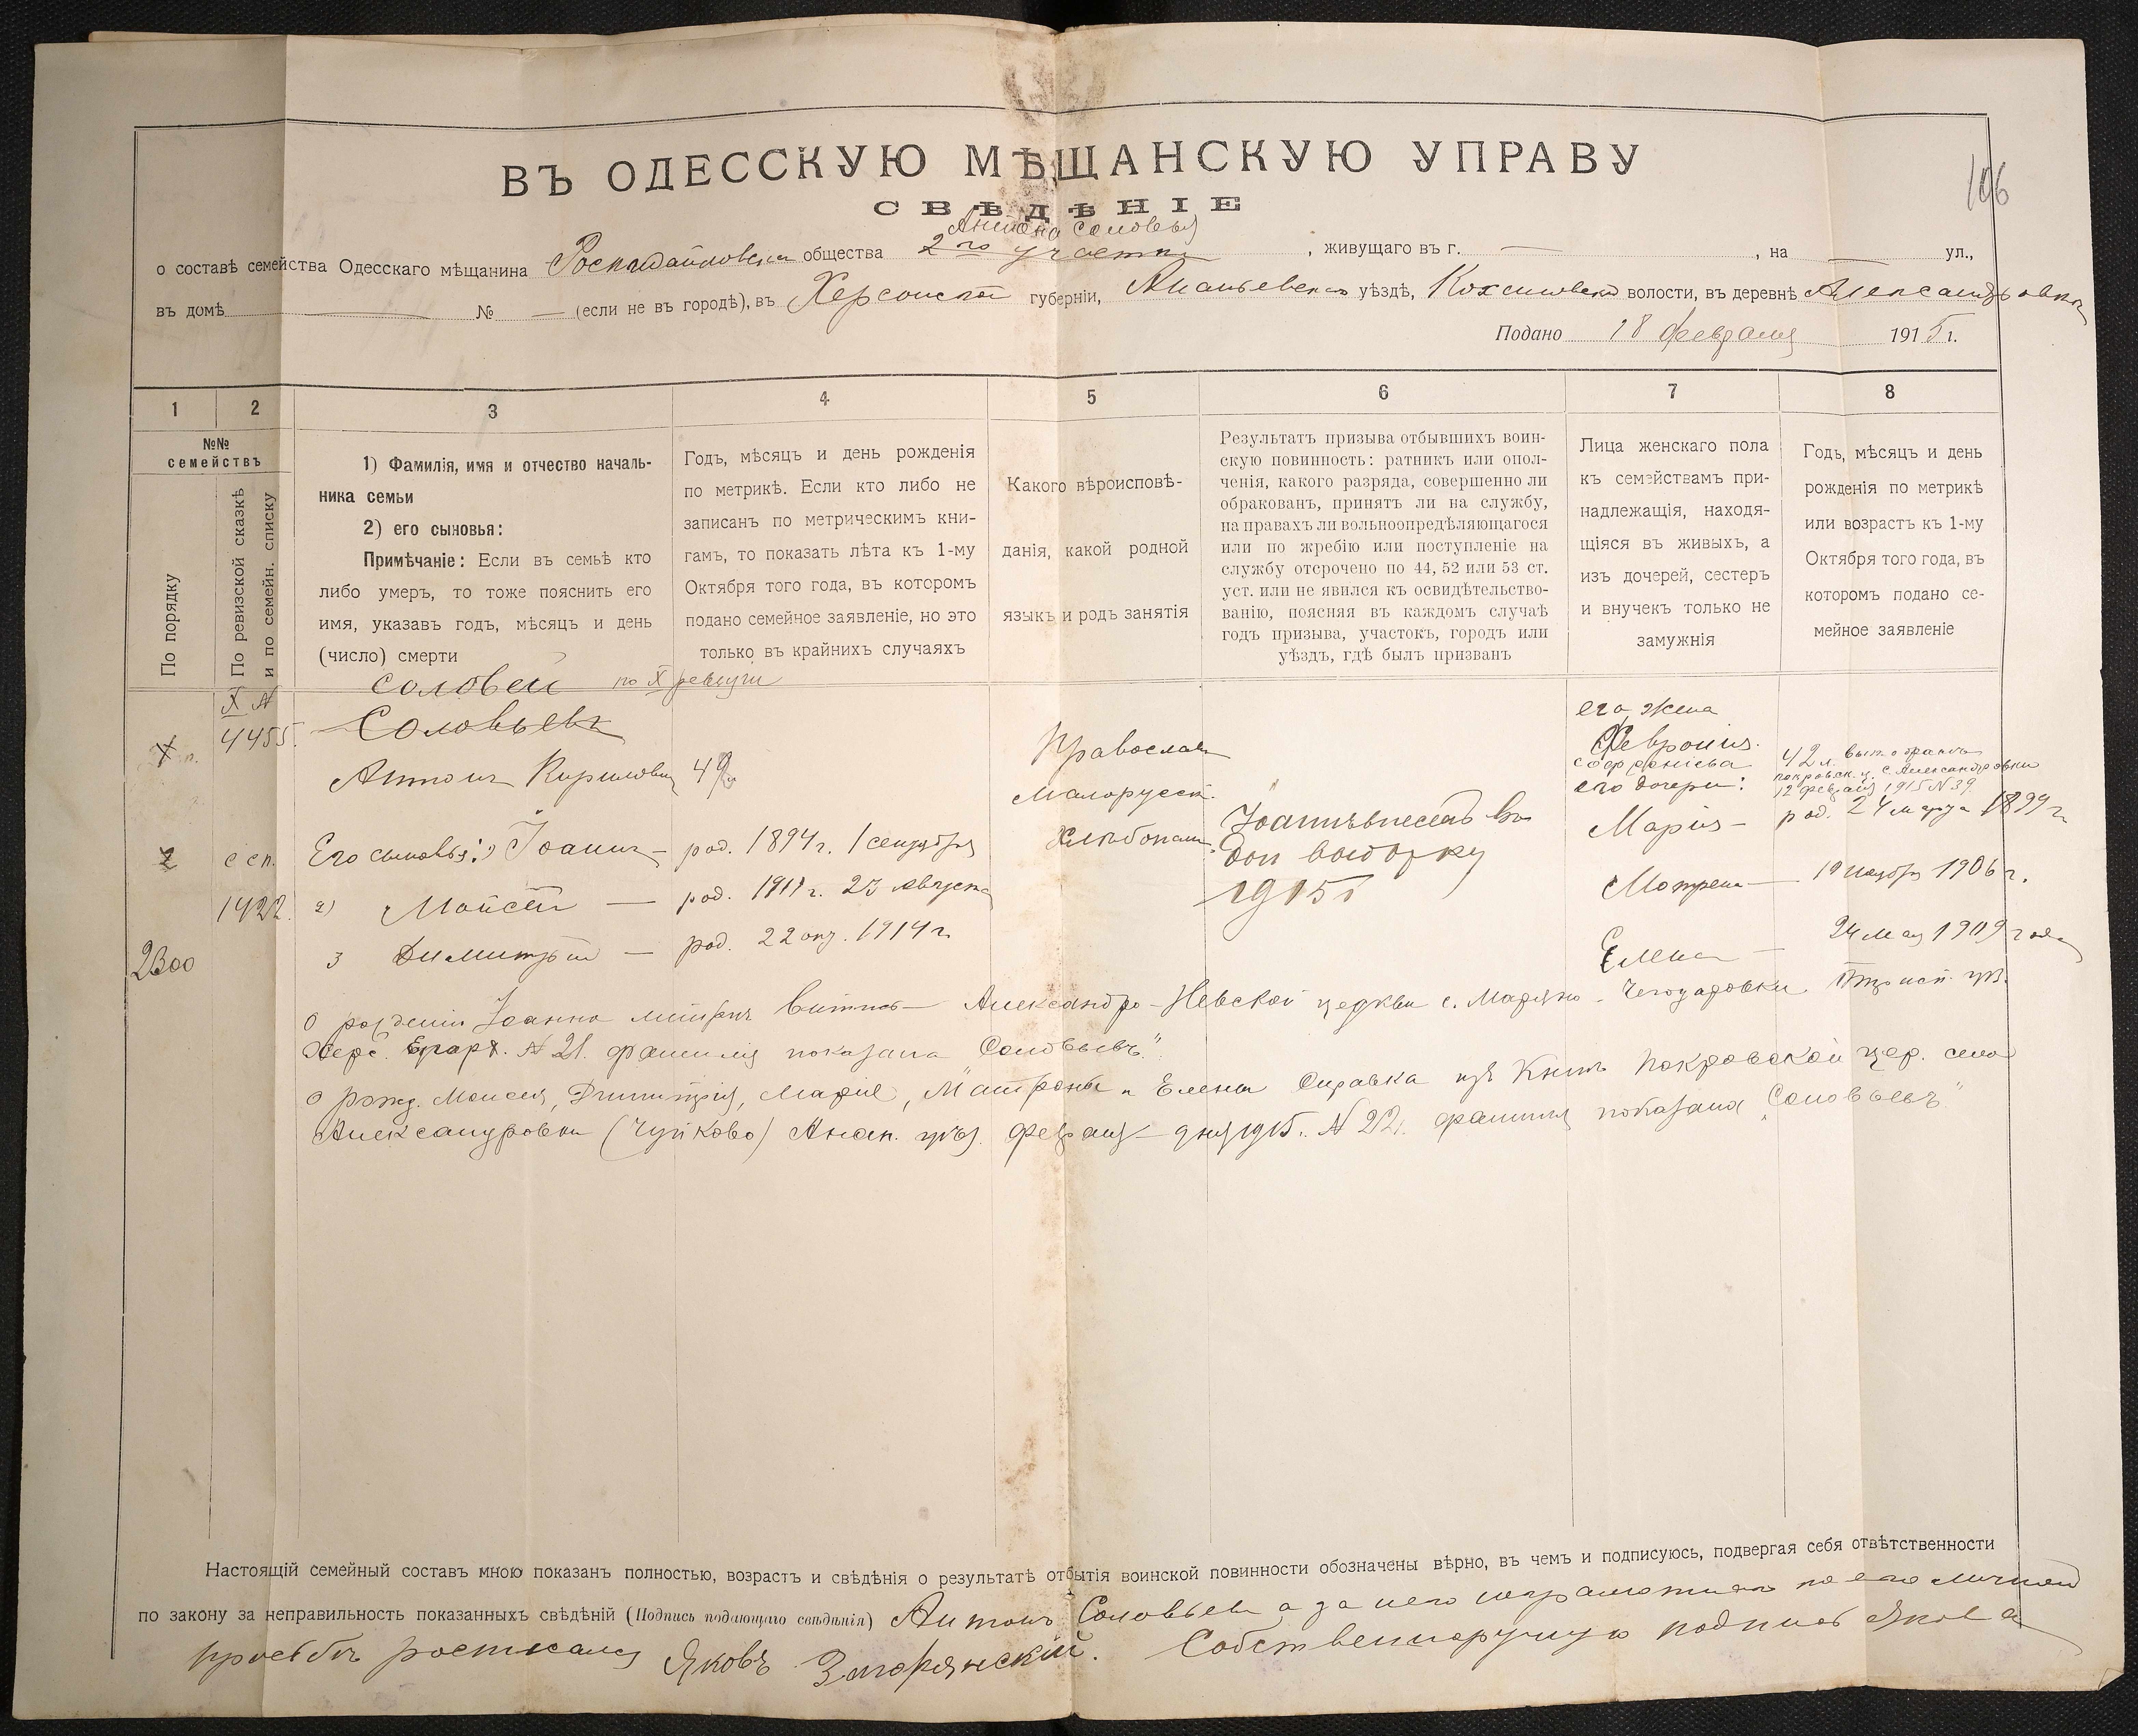 106
ВЪ ОДЕССКУЮ МѢЩАНСКУЮ УПРАВУ
СВѢДѢНІЕ
Антона Соловья
о составѣ семейства Одесскаго мѣщанина общества 2го участка, живущаго въ г. — , на — ул.,
въ домѣ — № — (если не въ городѣ), въ Херсонской губерніи, Ананьевскомъ уѣздѣ, волости, въ деревнѣ Александровкѣ
Подано 18 февраля 1915 г.
1 2 3 4 5 6 7 8
№№
семействъ
По порядку
По ревизской сказкѣ
и по семейн. списку
1) Фамилія, имя и отчество началь-
ника семьи
2) его сыновья:
Примѣчаніе: Если въ семьѣ кто
либо умеръ, то тоже пояснить его
имя, указавъ годъ, мѣсяцъ и день
(число) смерти
Годъ, мѣсяцъ и день рожденія
по метрикѣ. Если кто либо не
записанъ по метрическимъ кни-
гамъ, то показать лѣта къ 1-му
Октября того года, въ которомъ
подано семейное заявленіе, но это
только въ крайнихъ случаяхъ
Какого вѣроисповѣ-
данія, какой родной
языкъ и родъ занятія
Результатъ призыва отбывшихъ воин-
скую повинность: ратникъ или опол-
ченія, какого разряда, совершенно ли
обракованъ, принятъ ли на службу,
на правахъ ли вольноопредѣляющагося
или по жребію или поступленіе на
службу отсрочено по 44, 52 или 53 ст.
уст. или не явился къ освидѣтельство-
ванію, поясняя въ каждомъ случаѣ
годъ призыва, участокъ, городъ или
уѣздъ, гдѣ былъ призванъ
Лица женскаго пола
къ семействамъ при-
надлежащія, находя-
щіяся въ живыхъ, а
изъ дочерей, сестеръ
и внучекъ только не
замужнія
Годъ, мѣсяцъ и день
рожденія по метрикѣ
или возрастъ къ 1-му
Октября того года, въ
которомъ подано се-
мейное заявленіе
Соловей по X ревизіи
X №
4455.
Соловьевъ
Антонъ Кириловъ 49
Православн
Малорусск.
Хлѣбопаш.
его жена
Феврония
Софрониева 42 л.
Покровск. ц. с. Александровки
12 февраля 1915 № 39
его дочери:
Мария – род. 24 марта 1899 г.
Его сыновья: 1) Іоаннъ – род. 1894 г. 1 сентября
с сп.
1422.
2) Моисей — род. 1911 г. 23 августа
3 Димитрій — род. 22 окт. 1914 г.
2300
Іоаннъ внесенъ во
доп выборку
1915 г
Матрена — 1906 г.
Елена — 24 мая 1909 года
о рожденіи Іоанна Александро-Невской церкви с.
Херс. Епарх. № 21. фамилия показана „Соловьевъ".
о рожд. Моисея, Димитрія, Маріи, Матроны и Елены Справка изъ Книгъ Покровской цер. села
Александровки (Чуйково) Анан. уѣз. февраля 9 дня 1915 г. № 22. фамилия показана „Соловьевъ"
Настоящій семейный составъ мною показанъ полностью, возрастъ и свѣдѣнія о результатѣ отбытія воинской повинности обозначены вѣрно, въ чемъ и подписуюсь, подвергая себя отвѣтственности
по закону за неправильность показанныхъ свѣдѣній (Подпись подающаго свѣдѣнія) Антонъ Соловьевъ а за него неграмотнаго по его личной
просьбѣ росписался Яковъ Загорянскій. Собственноручную подпись Якова